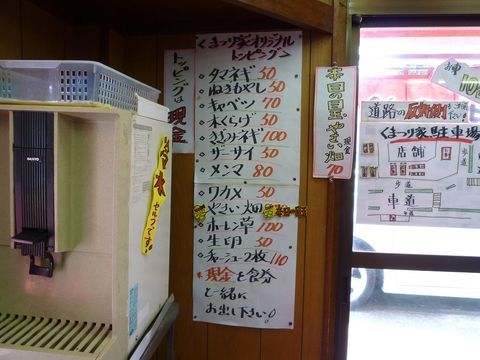 トッピングは現金
くまっり家オリジナル
トッピング〉
タマネギ 50
ねぎもやし 50
キャベツ 70
木くらげ 50
きざみネギ 100
ザーサイ 50
メンマ 80
ワカメ 50
やさい畑
ホーレン草 100
生卵 50
チャーシュー2枚 110
※現金を食券
と一緒に
お出し下さい。
本日の日玉
やさい畑
現金
70
SANYO
水
セルフです。
道路の反対側
くまっり家駐車場
店舗
歩道
車道
歩道